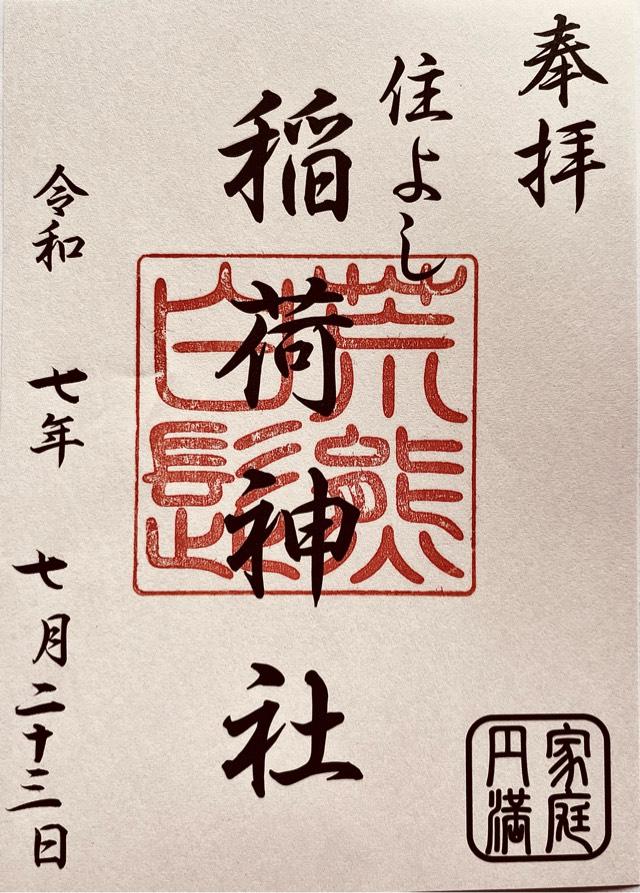 奉拝
住よし
稲荷神社
荒熊
白髭
令和 七年 七月二十三日
家庭
円満